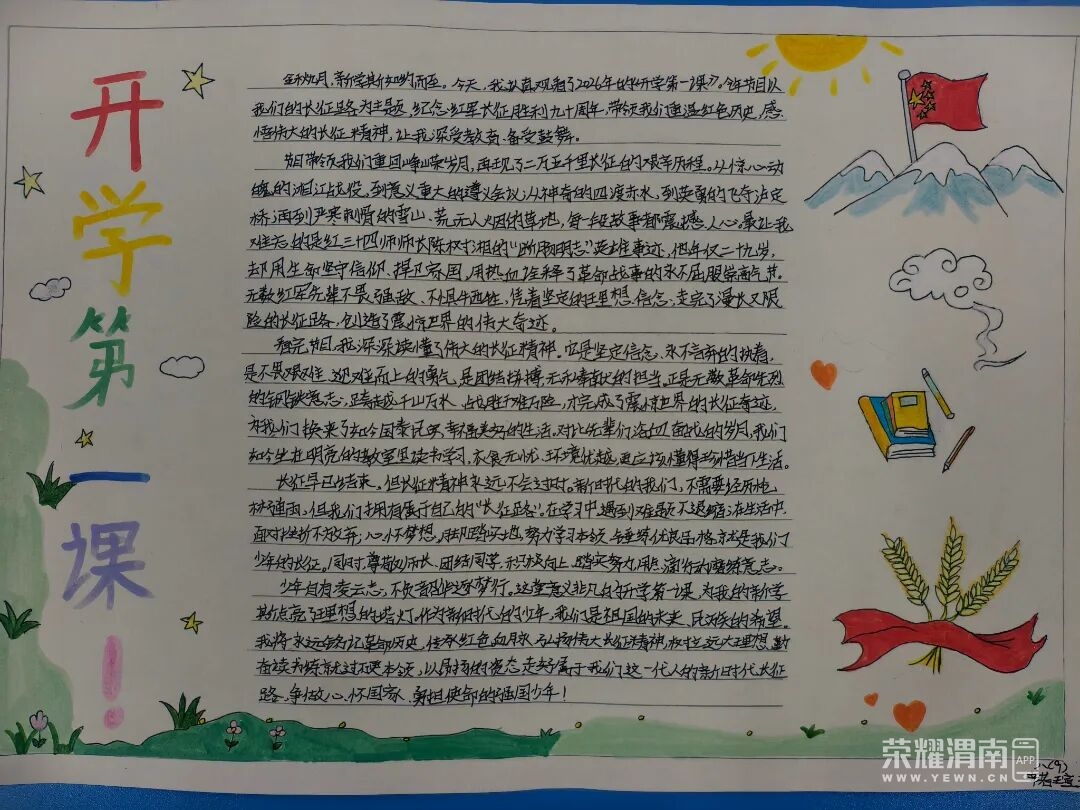 开学第一课!
金秋九月,新学期如约而至。今天,我认真观看了2026年的《开学第一课》。今年节目以
我们的长征路为主题,纪念红军长征胜利九十周年,带领我们重温红色历史,感
悟伟大的长征精神,让我深受教育、备受鼓舞。
节目带领我们重回峥嵘岁月,再现了二万五千里长征的艰辛历程。从惊心动
魄的湘江战役,到意义重大的遵义会议,从神奇的四渡赤水,到英勇的飞夺泸定
桥,再到严寒刺骨的雪山、荒无人烟的草地,每一段故事都震撼人心。最让我
难忘的是红三十四师师长陈树湘的“断肠明志”英雄事迹,他年仅二十九岁,
却用生命坚守信仰、捍卫家国,用热血诠释了革命战士的永不屈服崇高气节。
无数红军先辈不畏强敌、不惧牺牲,凭着坚定的理想信念,走完了漫长又艰
险的长征路,创造了震惊世界的伟大奇迹。
看完节目,我深深读懂了伟大的长征精神。它是坚定信念、永不言弃的执着,
是不畏艰难、迎难而上的勇气,是团结拼搏、无私奉献的担当。正是无数革命先烈
的钢铁意志,跨越千山万水、战胜千难万险,才完成了震惊世界的长征奇迹,
为我们换来了如今国泰民安、幸福美好的生活。对比先辈们浴血奋战的岁月,我们
如今坐在明亮的教室里读书学习,衣食无忧、环境优越,更应该懂得珍惜当下生活。
长征早已结束,但长征精神永远不会过时。新时代的我们,不需要经历枪
林弹雨,但我们拥有属于自己的“长征路”。在学习中遇到难题不退缩;在生活中,
面对挫折不放弃;心怀梦想,脚踏实地,努力学习本领、锤炼优良品格,就是我们
少年的长征。同时,尊敬师长、团结同学、积极向上、踏实努力,用实际行动磨练意志。
少年自有凌云志,不负韶华逐梦行。这堂意义非凡的开学第一课,为我的新学
期点亮了理想的塔灯,作为新时代的少年,我们是祖国的未来、民族的希望。
我将永远铭记革命历史,传承红色血脉,弘扬伟大长征精神,树立远大理想,勤
奋读书练就过硬本领,以昂扬的姿态走好属于我们这一代人的新时代长征
路,争做心怀国家、勇担使命的强国少年!
八(9)
荣耀渭南
APP
WWW.YEWN.CN